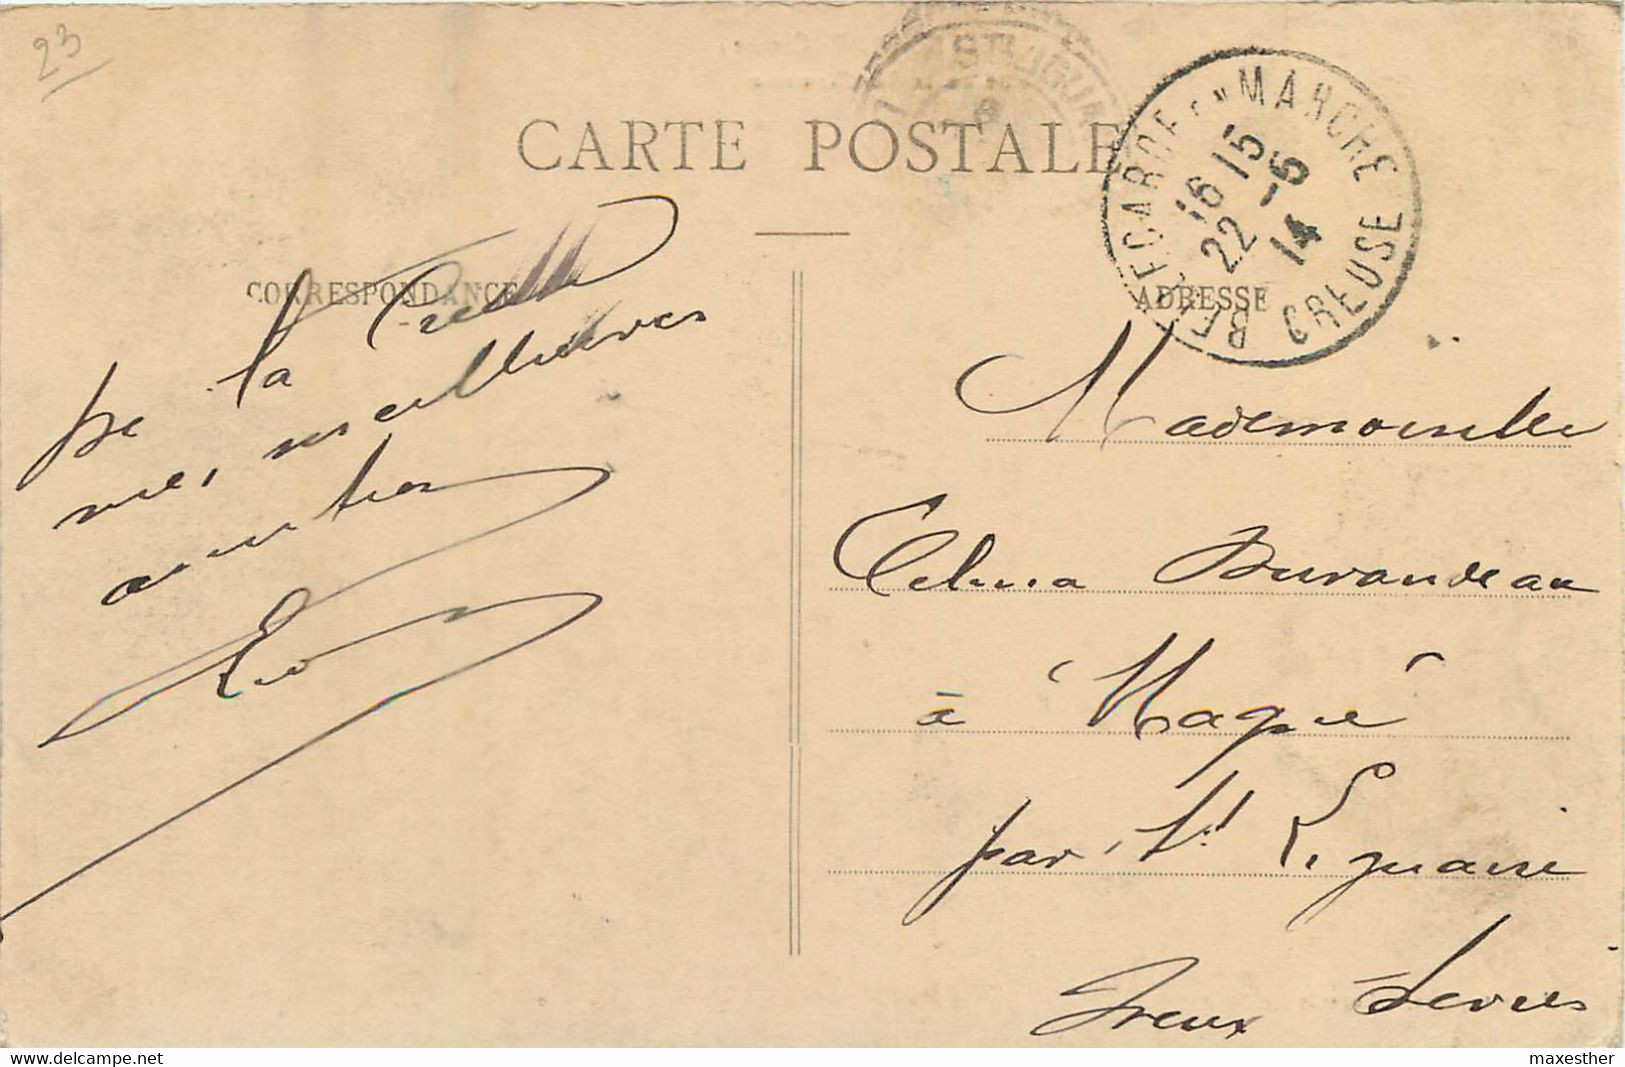 23
CARTE POSTALE
CORRESPONDANCE
ADRESSE
BELLEGARDE EN MARCHE
16 15
22 -5
14
CREUSE
De la Creuse
mes meilleures
amitiés
Mademoiselle
Celina Durandeau
à Magné
par St Liguaire
Deux Sèvres
delcampe.net
maxesther